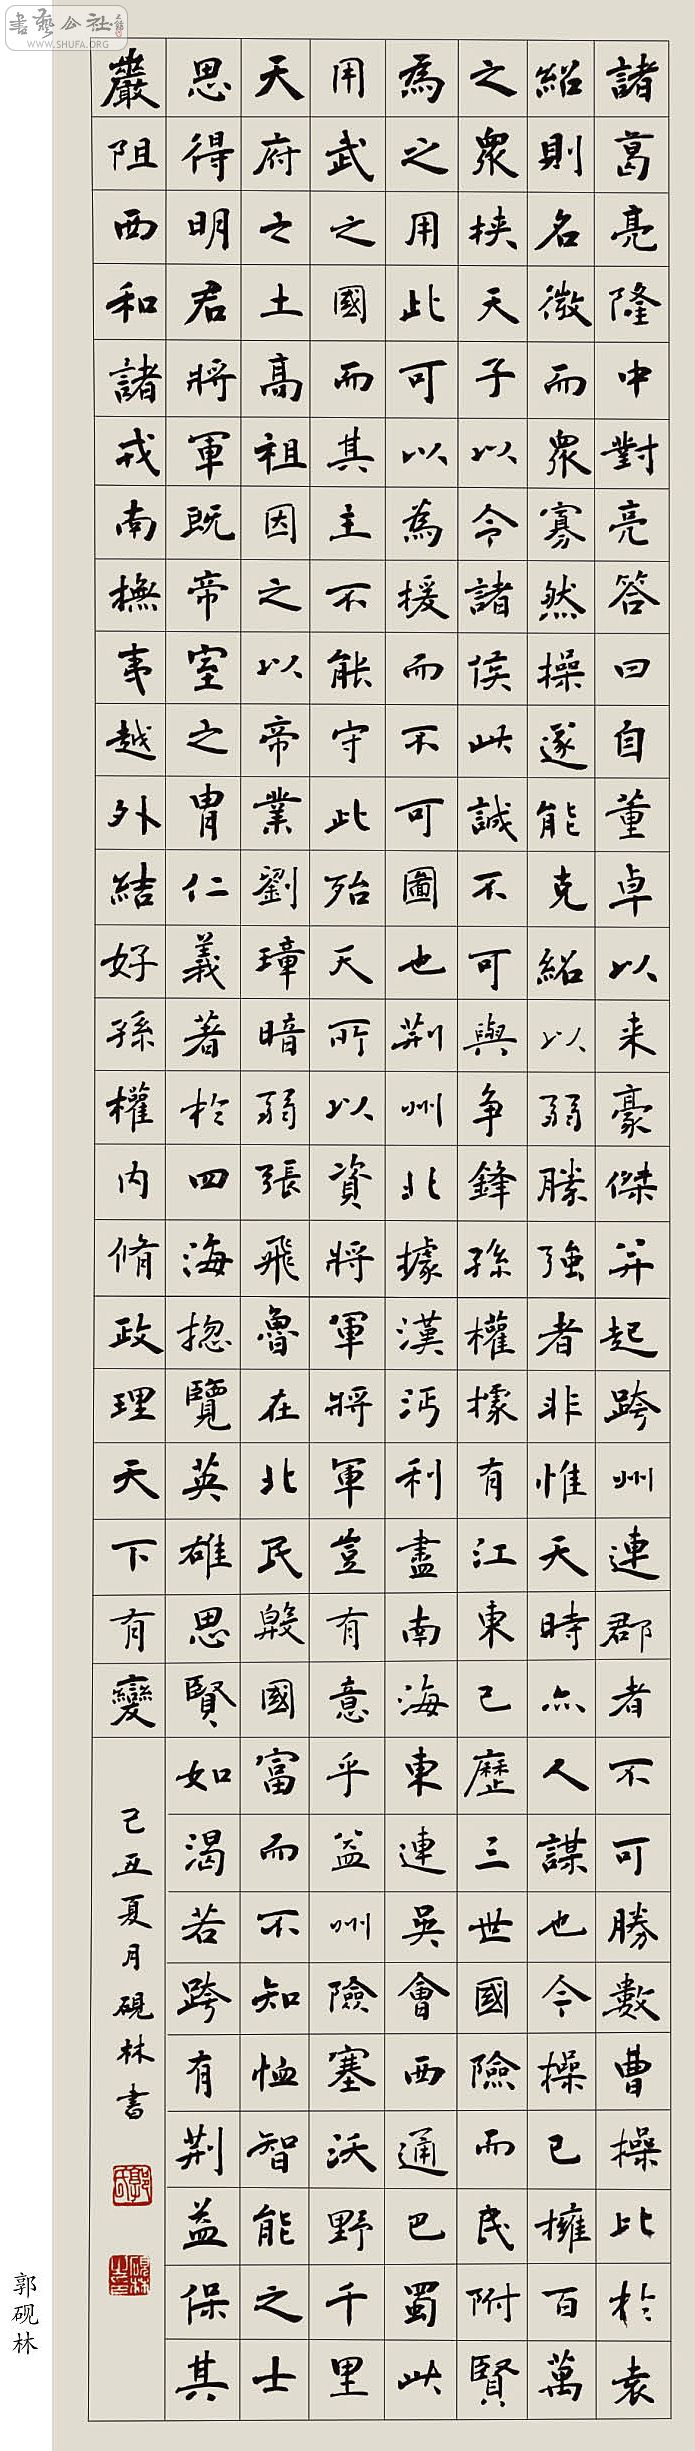 諸葛亮隆中對亮答曰自董卓以来豪傑并起跨州連郡者不可勝數曹操比於袁
紹則名微而衆寡然操遂能克紹以弱勝強者非惟天時亦人謀也今操已擁百萬
之衆挟天子以令諸侯此誠不可與争鋒孫權據有江東已歷三世國險而民附賢
為之用此可以為援而不可圖也荆州北據漢沔利盡南海東連吳會西通巴蜀此
用武之國而其主不能守此殆天所以資將軍將軍豈有意乎益州險塞沃野千里
天府之土高祖因之以帝業劉璋暗弱張飛魯在北民殷國富而不知恤智能之士
思得明君將軍既帝室之胄仁義著於四海揔覽英雄思賢如渴若跨有荆益保其
巖阻西和諸戎南撫夷越外結好孫權内脩政理天下有變
己丑夏月硯林書
郭砚林
書藝公社
WWW.SHUFA.ORG